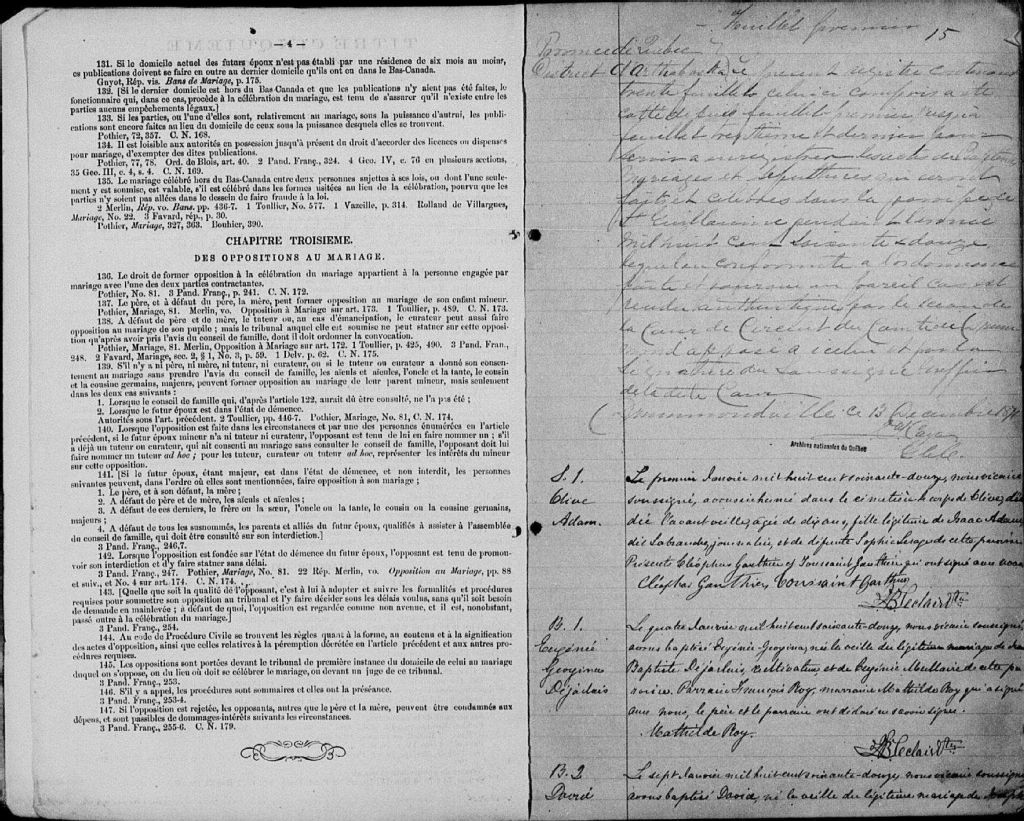 — 4 —
131. Si le domicile actuel des futurs époux n'est pas établi par une résidence de six mois au moins,
ces publications doivent se faire en outre au dernier domicile qu'ils ont eu dans le Bas-Canada.
Guyot, Rép. vis. Bans de Mariage, p. 175.
132. [Si le dernier domicile est hors du Bas-Canada et que les publications n'y aient pas été faites, le
fonctionnaire qui, dans ce cas, procède à la célébration du mariage, est tenu de s'assurer qu'il n'existe entre les
parties aucuns empêchements légaux.]
133. Si les parties, ou l'une d'elles sont, relativement au mariage, sous la puissance d'autrui, les publi-
cations sont encore faites au lieu du domicile de ceux sous la puissance desquels elles se trouvent.
Pothier, 72, 357. C. N. 168.
134. Il est loisible aux autorités en possession jusqu'à présent du droit d'accorder des licences ou dispenses
pour mariage, d'exempter des dites publications.
Pothier, 77, 78. Ord. de Blois, art. 40. 2 Pand. Franç., 324. 4 Geo. IV, c. 76 en plusieurs sections,
35 Geo. III, c. 4, s. 4. C. N. 169.
135. Le mariage célébré hors du Bas-Canada entre deux personnes sujettes à ses lois, ou dont l'une seule-
ment y est soumise, est valable, s'il est célébré dans les formes usitées au lieu de la célébration, pourvu que les
parties n'y soient pas allées dans le dessein de faire fraude à la loi.
2 Merlin, Rép. vo. Bans. pp. 436-7. 1 Toullier, No. 577. 1 Vazeille, p. 314. Rolland de Villargues,
Mariage, No. 22. 3 Favard, rép., p. 30.
Pothier, Mariage, 327, 363. Bouhier, 390.
CHAPITRE TROISIEME.
DES OPPOSITIONS AU MARIAGE.
136. Le droit de former opposition à la célébration du mariage appartient à la personne engagée par
mariage avec l'une des deux parties contractantes.
Pothier, No. 81. 3 Pand. Franç., p. 241. C. N. 172.
137. Le père, et à défaut du père, la mère, peut former opposition au mariage de son enfant mineur.
Pothier, Mariage, 81. Merlin, vo. Opposition à Mariage sur art. 173. 1 Toullier, p. 489. C. N. 173.
138. A défaut de père et de mère, le tuteur ou, au cas d'émancipation, le curateur peut aussi faire
opposition au mariage de son pupille ; mais le tribunal auquel elle est soumise ne peut statuer sur cette opposi-
tion qu'après avoir pris l'avis du conseil de famille, dont il doit ordonner la convocation.
Pothier, Mariage, 81. Merlin, Opposition à Mariage sur art. 172. 1 Toullier, p. 425, 490. 3 Pand. Fran.,
248. 2 Favard, Mariage, sec. 2, § 1, No. 3, p. 59. 1 Delv. p. 62. C. N. 175.
139. S'il n'y a ni père, ni mère, ni tuteur, ni curateur, ou si le tuteur ou curateur a donné son consen-
tement au mariage sans prendre l'avis du conseil de famille, les aïeuls et aïeules, l'oncle et la tante, le cousin
et la cousine germains, majeurs, peuvent former opposition au mariage de leur parent mineur, mais seulement
dans les deux cas suivants :
1. Lorsque le conseil de famille qui, d'après l'article 122, aurait dû être consulté, ne l'a pas été ;
2. Lorsque le futur époux est dans l'état de démence.
Autorités sous l'art. précédent. 2 Toullier, pp. 446-7. Pothier, Mariage, No. 81, C. N. 174.
140. Lorsque l'opposition est faite dans les circonstances et par une des personnes énumérées en l'article
précédent, si le futur époux mineur n'a ni tuteur ni curateur, l'opposant est tenu de lui en faire nommer un ; s'il
a déjà un tuteur ou curateur, qui ait consenti au mariage sans consulter le conseil de famille, l'opposant doit lui
faire nommer un tuteur ad hoc ; pour les tuteur, curateur ou tuteur ad hoc, représenter les intérêts du mineur
sur cette opposition.
141. [Si le futur époux, étant majeur, est dans l'état de démence, et non interdit, les personnes
suivantes peuvent, dans l'ordre où elles sont mentionnées, faire opposition à son mariage ;
1. Le père, et à son défaut, la mère ;
2. A défaut de père et de mère, les aïeuls et aïeules ;
3. A défaut de ces derniers, le frère ou la sœur, l'oncle ou la tante, le cousin ou la cousine germains,
majeurs ;
4. A défaut de tous les susnommés, les parents et alliés du futur époux, qualifiés à assister à l'assemblée
du conseil de famille, qui doit être consulté sur son interdiction.]
3 Pand. Franç., 246,7.
142. Lorsque l'opposition est fondée sur l'état de démence du futur époux, l'opposant est tenu de promou-
voir son interdiction et d'y faire statuer sans délai.
3 Pand. Franç., 247. Pothier, Mariage, No. 81. 22 Rép. Merlin, vo. Opposition au Mariage, pp. 88
et suiv., et No. 4 sur art. 174. C. N. 174.
143. [Quelque que soit la qualité de l'opposant, c'est à lui à adopter et suivre les formalités et procédures
requises pour soumettre son opposition au tribunal et l'y faire décider sous les délais voulus, sans qu'il soit besoin
de demande en mainlevée ; à défaut de quoi, l'opposition est regardée comme non avenue, et il est, nonobstant,
passé outre à la célébration du mariage.]
3 Pand. Franç., 254.
144. Au code de Procédure Civile se trouvent les règles quant à la forme, au contenu et à la signification
des actes d'opposition, ainsi que celles relatives à la péremption décrétée en l'article précédent et aux autres pro-
cédures requises.
145. Les oppositions sont portées devant le tribunal de première instance du domicile de celui au mariage
duquel on s'oppose, ou du lieu où doit se célébrer le mariage, ou devant un juge de ce tribunal.
3 Pand. Franç., 253.
146. S'il y a appel, les procédures sont sommaires et elles ont la préséance.
3 Pand. Franç., 253-4.
147. Si l'opposition est rejetée, les opposants, autres que le père et la mère, peuvent être condamnés aux
dépens, et sont passibles de dommages-intérêts suivants les circonstances.
3 Pand. Franç., 255-6. C. N. 179.
Feuillet premier 15
Province de Québec
District d'Arthabaska Le présent registre contenant
trente feuillets celui-ci compris a été
feuillet septième et dernier pour
servir à enregistrer les actes de Baptêmes
mariages et sépultures qui seront
faits et célébrés dans la paroisse de
St Guillaume pendant l'année
mil huit cent soixante & douze
la Cour de Circuit du Comté de Drummond
Signature du soussigné Greffier
de la dite Cour
Drummondville ce 13 Decembre
Archives nationales du Québec
S. 1.
Olive
Adam.
Le premier Janvier mil huit cent soixante-douze, nous vicaire
soussigné, avons inhumé dans le cimetière le corps de Olive, décé-
dée l'avant veille, agée de dix ans, fille légitime de Isaac Adam
dit Labranche, journalier, et de défunte Sophie Lesage de cette paroisse
Présents Cléophas Gauthier et Toussaint Gauthier qui ont signé avec nous
Cleophas Gauthier Toussaint Gauthier
JB Leclair Vtre
B. 1.
Eugénie
Georgina
Déjarlais
Le quatre Janvier mil huit cent soixante-douze, nous vicaire soussigné,
avons baptisé Eugénie Georgina, née la veille du légitime mariage de Jean
Baptiste Dejarlais, cultivateur et de Eugénie Mullaire de cette pa-
roisse. Parrain François Roy, marraine Mathilde Roy qui a signé
avec nous, le père et le parrain ont déclaré ne savoir signer.
Mathilde Roy.
JB Leclair Vtre
B. 2
David
Le sept Janvier mil huit cent soixante-douze, nous vicaire soussigné
avons baptisé David, né la veille du légitime mariage de Joseph